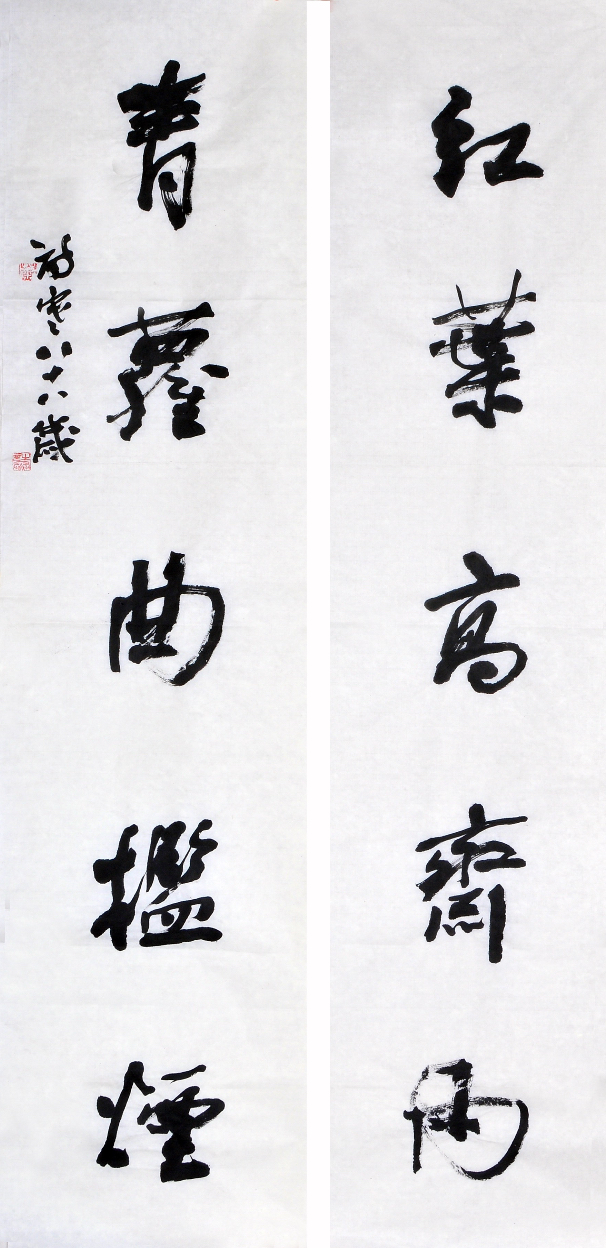 紅葉高齋雨
青蘿曲檻煙
八十八歲